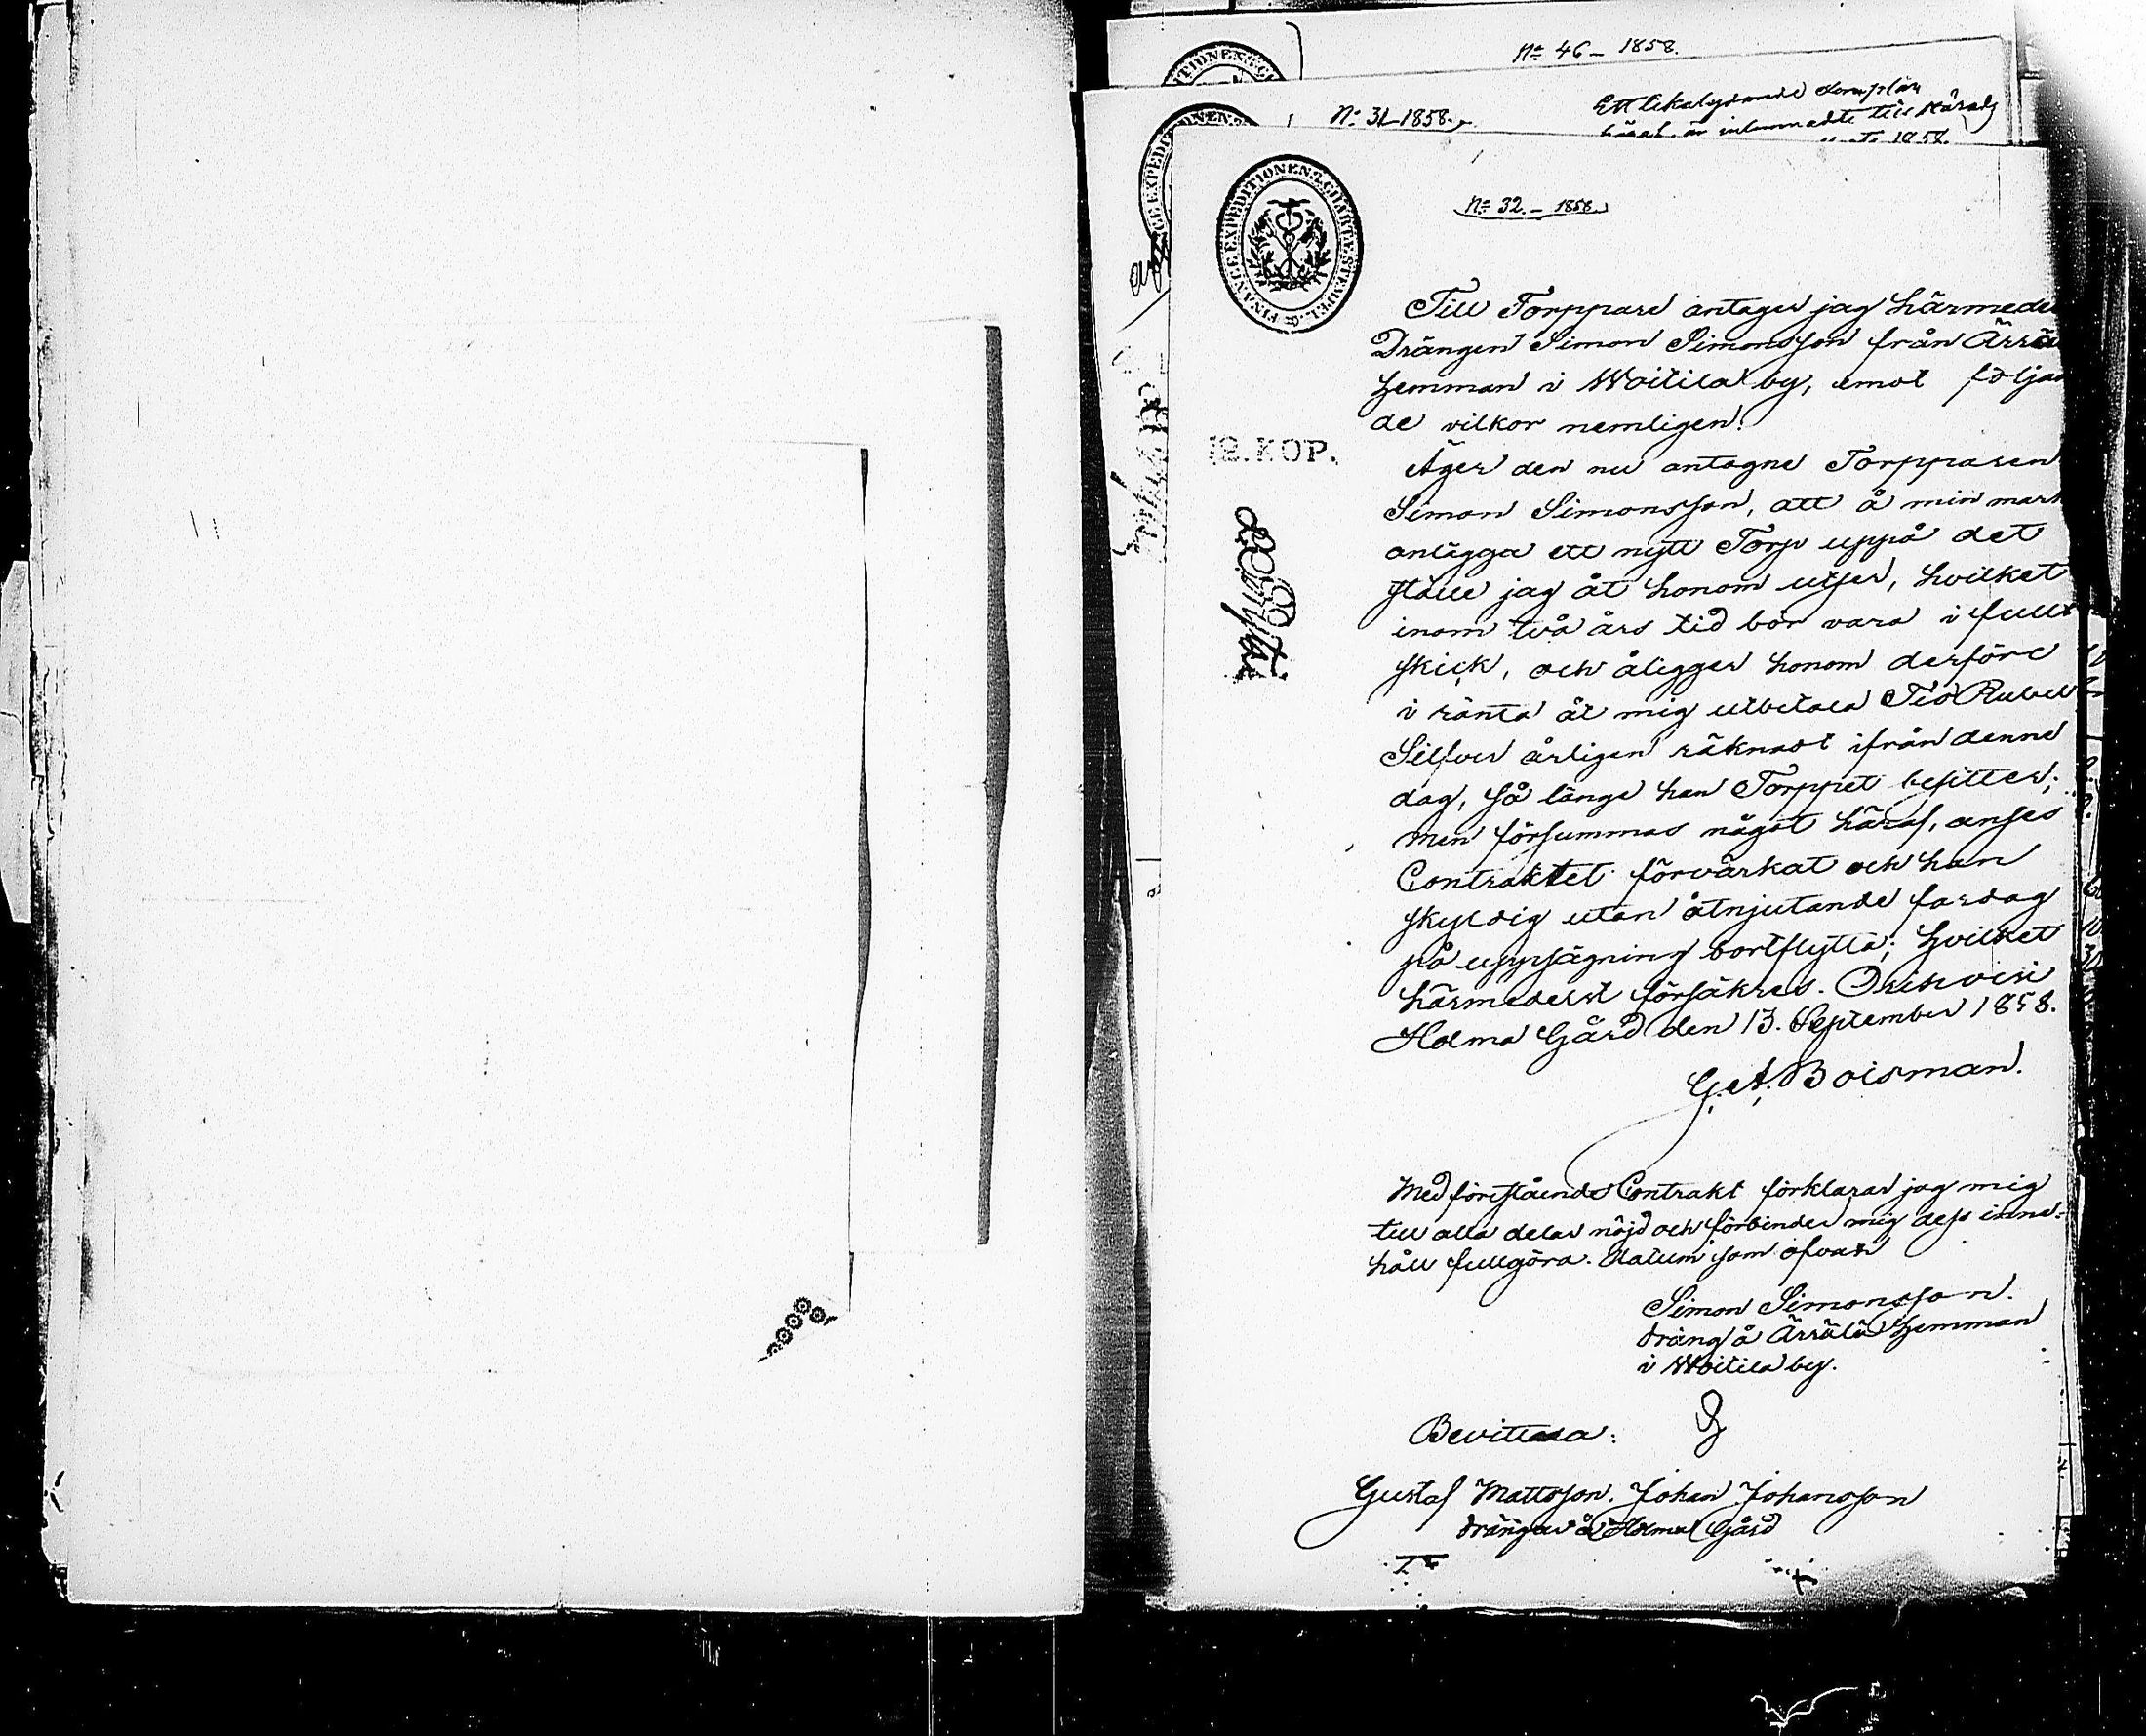 No 46 – 1858.
No 31 – 1858.
Ett likalydande exemplar
är inlemnadt till Härads
1858.
No 32. – 1858.
FINANCE EXPEDITIONENS CHARTÆ STEMPEL
12. KOP.
Till Torppare antager jag härmedel
Drängen Simon Simonsson från Ärrälä
hemman i Woitila by, emot följan
de vilkor nemligen:
Äger den nu antagne Torpparen
Simon Simonsson, att å min mark
anlägga ett nytt Torp uppå det
ställe jag åt honom utser, hvilket
inom två års tid bör vara i fullt
skick, och åligger honom derföre
i ränta åt mig utbetala Tio Rubel
Silfver årligen räknadt ifrån denne
dag, så länge han Torppet besitter;
men försummas något häraf, anses
Contraktet förvärkat och han
skyldig utan åtnjutande fardag
på uppsägning bortflytta; hvilket
härmedelst försäkras. Orihvesi
Holma Gård den 13. September 1858.
G. A. Boisman.
Med förestående Contrakt förklarar jag mig
till alla delar nöjd och förbinder mig dess inne=
håll fullgöra. Datum som ofvan
Simon Simonsson.
dräng å Ärrälä hemman
i Woitila by.
Bevittna:
Gustaf Mattsson. Johan Johansson
drängar å Holma Gård